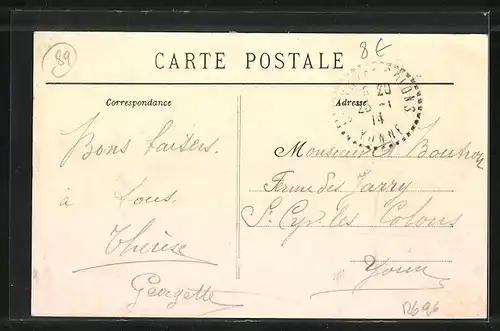 89
8€
CARTE POSTALE
Correspondance
Adresse
20
25 -1
14
YONNE
Bons baisers
à tous.
Thérèse
Georgette
Monsieur Bouthon
Ferme des Jarry
St Cyr les Colons
Yonne
R696